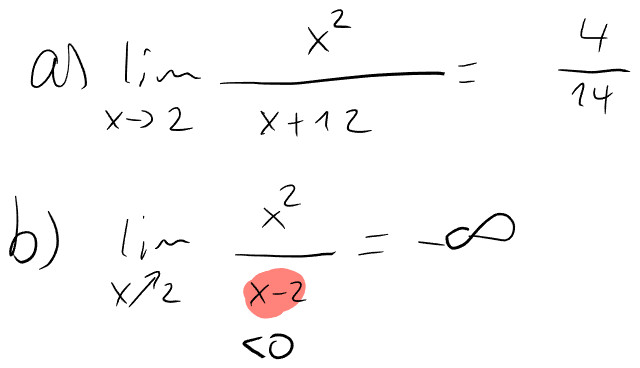 a) lim x→2 x²/(x+12) = 4/14
b) lim x↗2 x²/(x-2) = -∞
<0